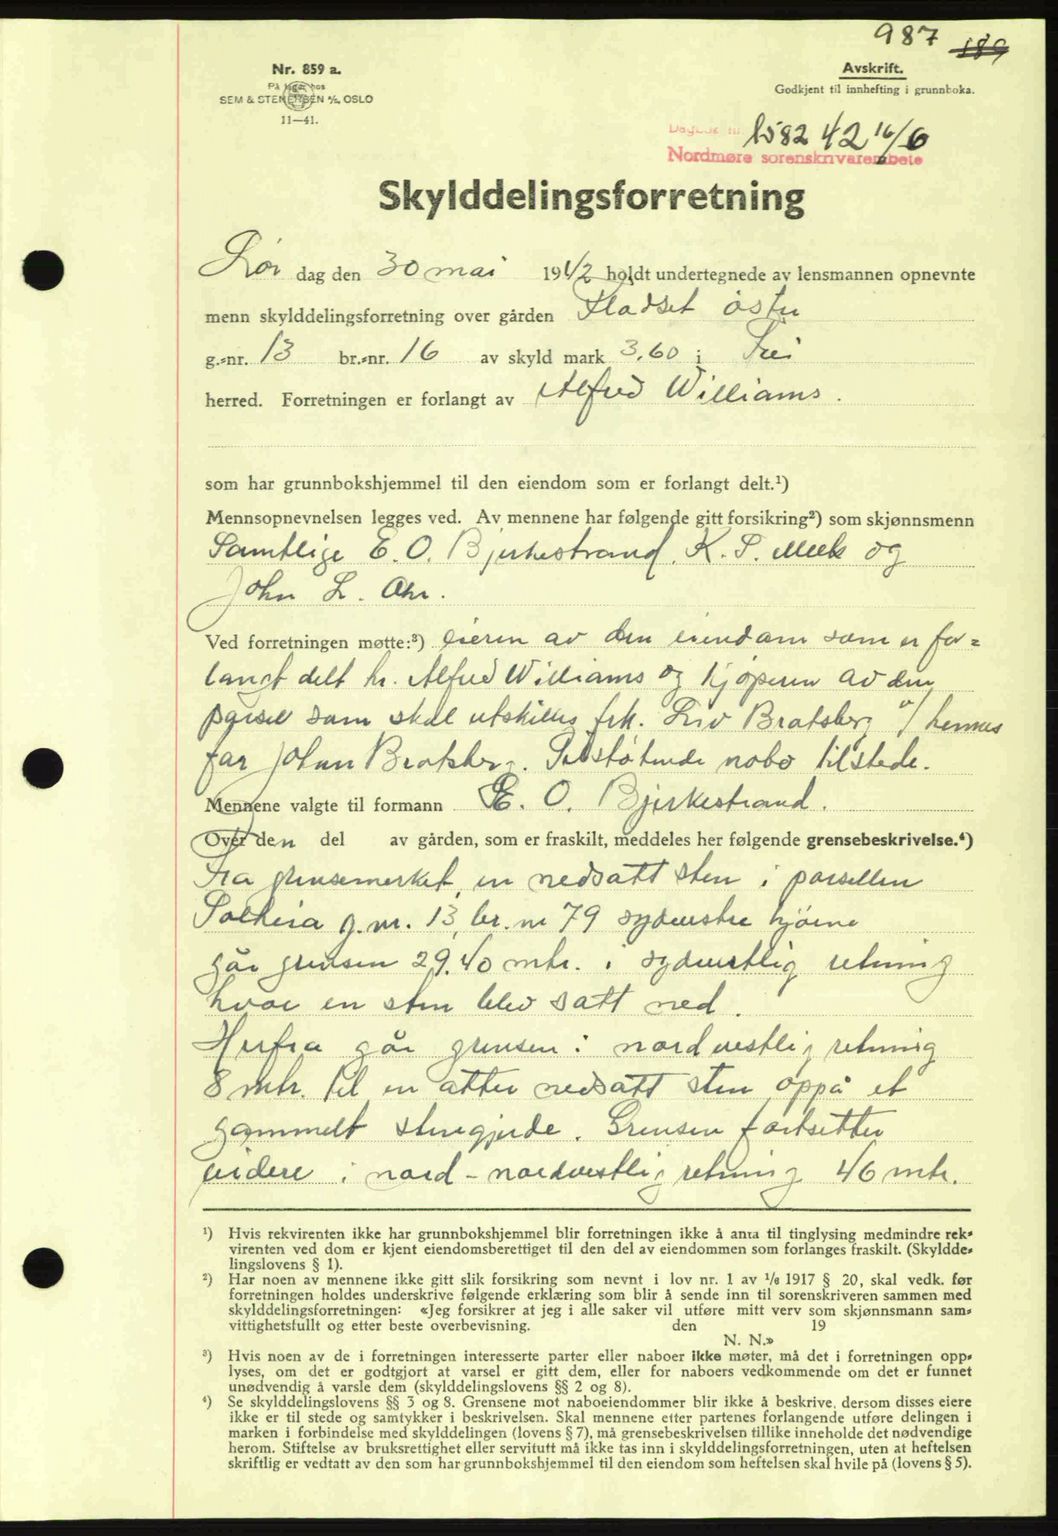 987 189
Nr. 859 a.
På lager hos
SEM & STENERSEN A/S, OSLO
11—41.
Avskrift.
Godkjent til innhefting i grunnboka.
Dagbok nr 1582 42 16/6
Nordmøre sorenskrivarembete
Skylddelingsforretning
Lør dag den 30 mai 1942 holdt undertegnede av lensmannen opnevnte
menn skylddelingsforretning over gården Fladset østre
g.-nr. 13 br.-nr. 16 av skyld mark 3,60 i Frei
herred. Forretningen er forlangt av Alfred Williams.
som har grunnbokshjemmel til den eiendom som er forlangt delt.¹)
Mennsopnevnelsen legges ved. Av mennene har følgende gitt forsikring²) som skjønnsmenn
Samtlige E. O. Bjerkestrand, K. P. Meek og
John L. Ohr.
Ved forretningen møtte:³) eieren av den eiendom som er for=
langt delt hr. Alfred Williams og kjøperen av den
parsel som skal utskilles frk. Liv Bratsberg v/ hennes
far Johan Bratsberg. Tilstøtende nabo tilstede.
Mennene valgte til formann E. O. Bjerkestrand.
Over den del av gården, som er fraskilt, meddeles her følgende grensebeskrivelse.⁴)
Fra grensemerket, en nedsatt sten i parsellen
Solheia g.nr. 13, br. nr 79 sydvestre hjørne
går grensen 29.40 mtr. i sydvestlig retning
hvor en sten blev satt ned.
Herfra går grensen i nordvestlig retning
8 mtr. til en atter nedsatt sten oppå et
gammelt stengjerde. Grensen fortsetter
videre i nord-nordvestlig retning 46 mtr.
¹) Hvis rekvirenten ikke har grunnbokshjemmel blir forretningen ikke å anta til tinglysing medmindre rek-
virenten ved dom er kjent eiendomsberettiget til den del av eiendommen som forlanges fraskilt. (Skyldde-
lingslovens § 1).
²) Har noen av mennene ikke gitt slik forsikring som nevnt i lov nr. 1 av 1/6 1917 § 20, skal vedk. før
forretningen holdes underskrive følgende erklæring som blir å sende inn til sorenskriveren sammen med
skylddelingsforretningen: «Jeg forsikrer at jeg i alle saker vil utføre mitt verv som skjønnsmann sam-
vittighetsfullt og etter beste overbevisning. den 19
N. N.»
³) Hvis noen av de i forretningen interesserte parter eller naboer ikke møter, må det i forretningen opp-
lyses, om det er godtgjort at varsel er gitt dem, eller for naboers vedkommende om det er funnet
unødvendig å varsle dem (skylddelingslovens §§ 2 og 8).
⁴) Se skylddelingslovens §§ 3 og 8. Grensene mot naboeiendommer blir ikke å beskrive, dersom disses eiere
ikke er til stede og samtykker i beskrivelsen. Skal mennene etter partenes forlangende utføre delingen i
marken i forbindelse med skylddelingen (lovens § 7), må grensebeskrivelsen tillike inneholde det nødvendige
herom. Stiftelse av bruksrettighet eller servitutt må ikke tas inn i skylddelingsforretningen, uten at heftelsen
skriftlig er vedtatt av den som har grunnbokshjemmel til den eiendom som heftelsen skal hvile på (lovens § 5).